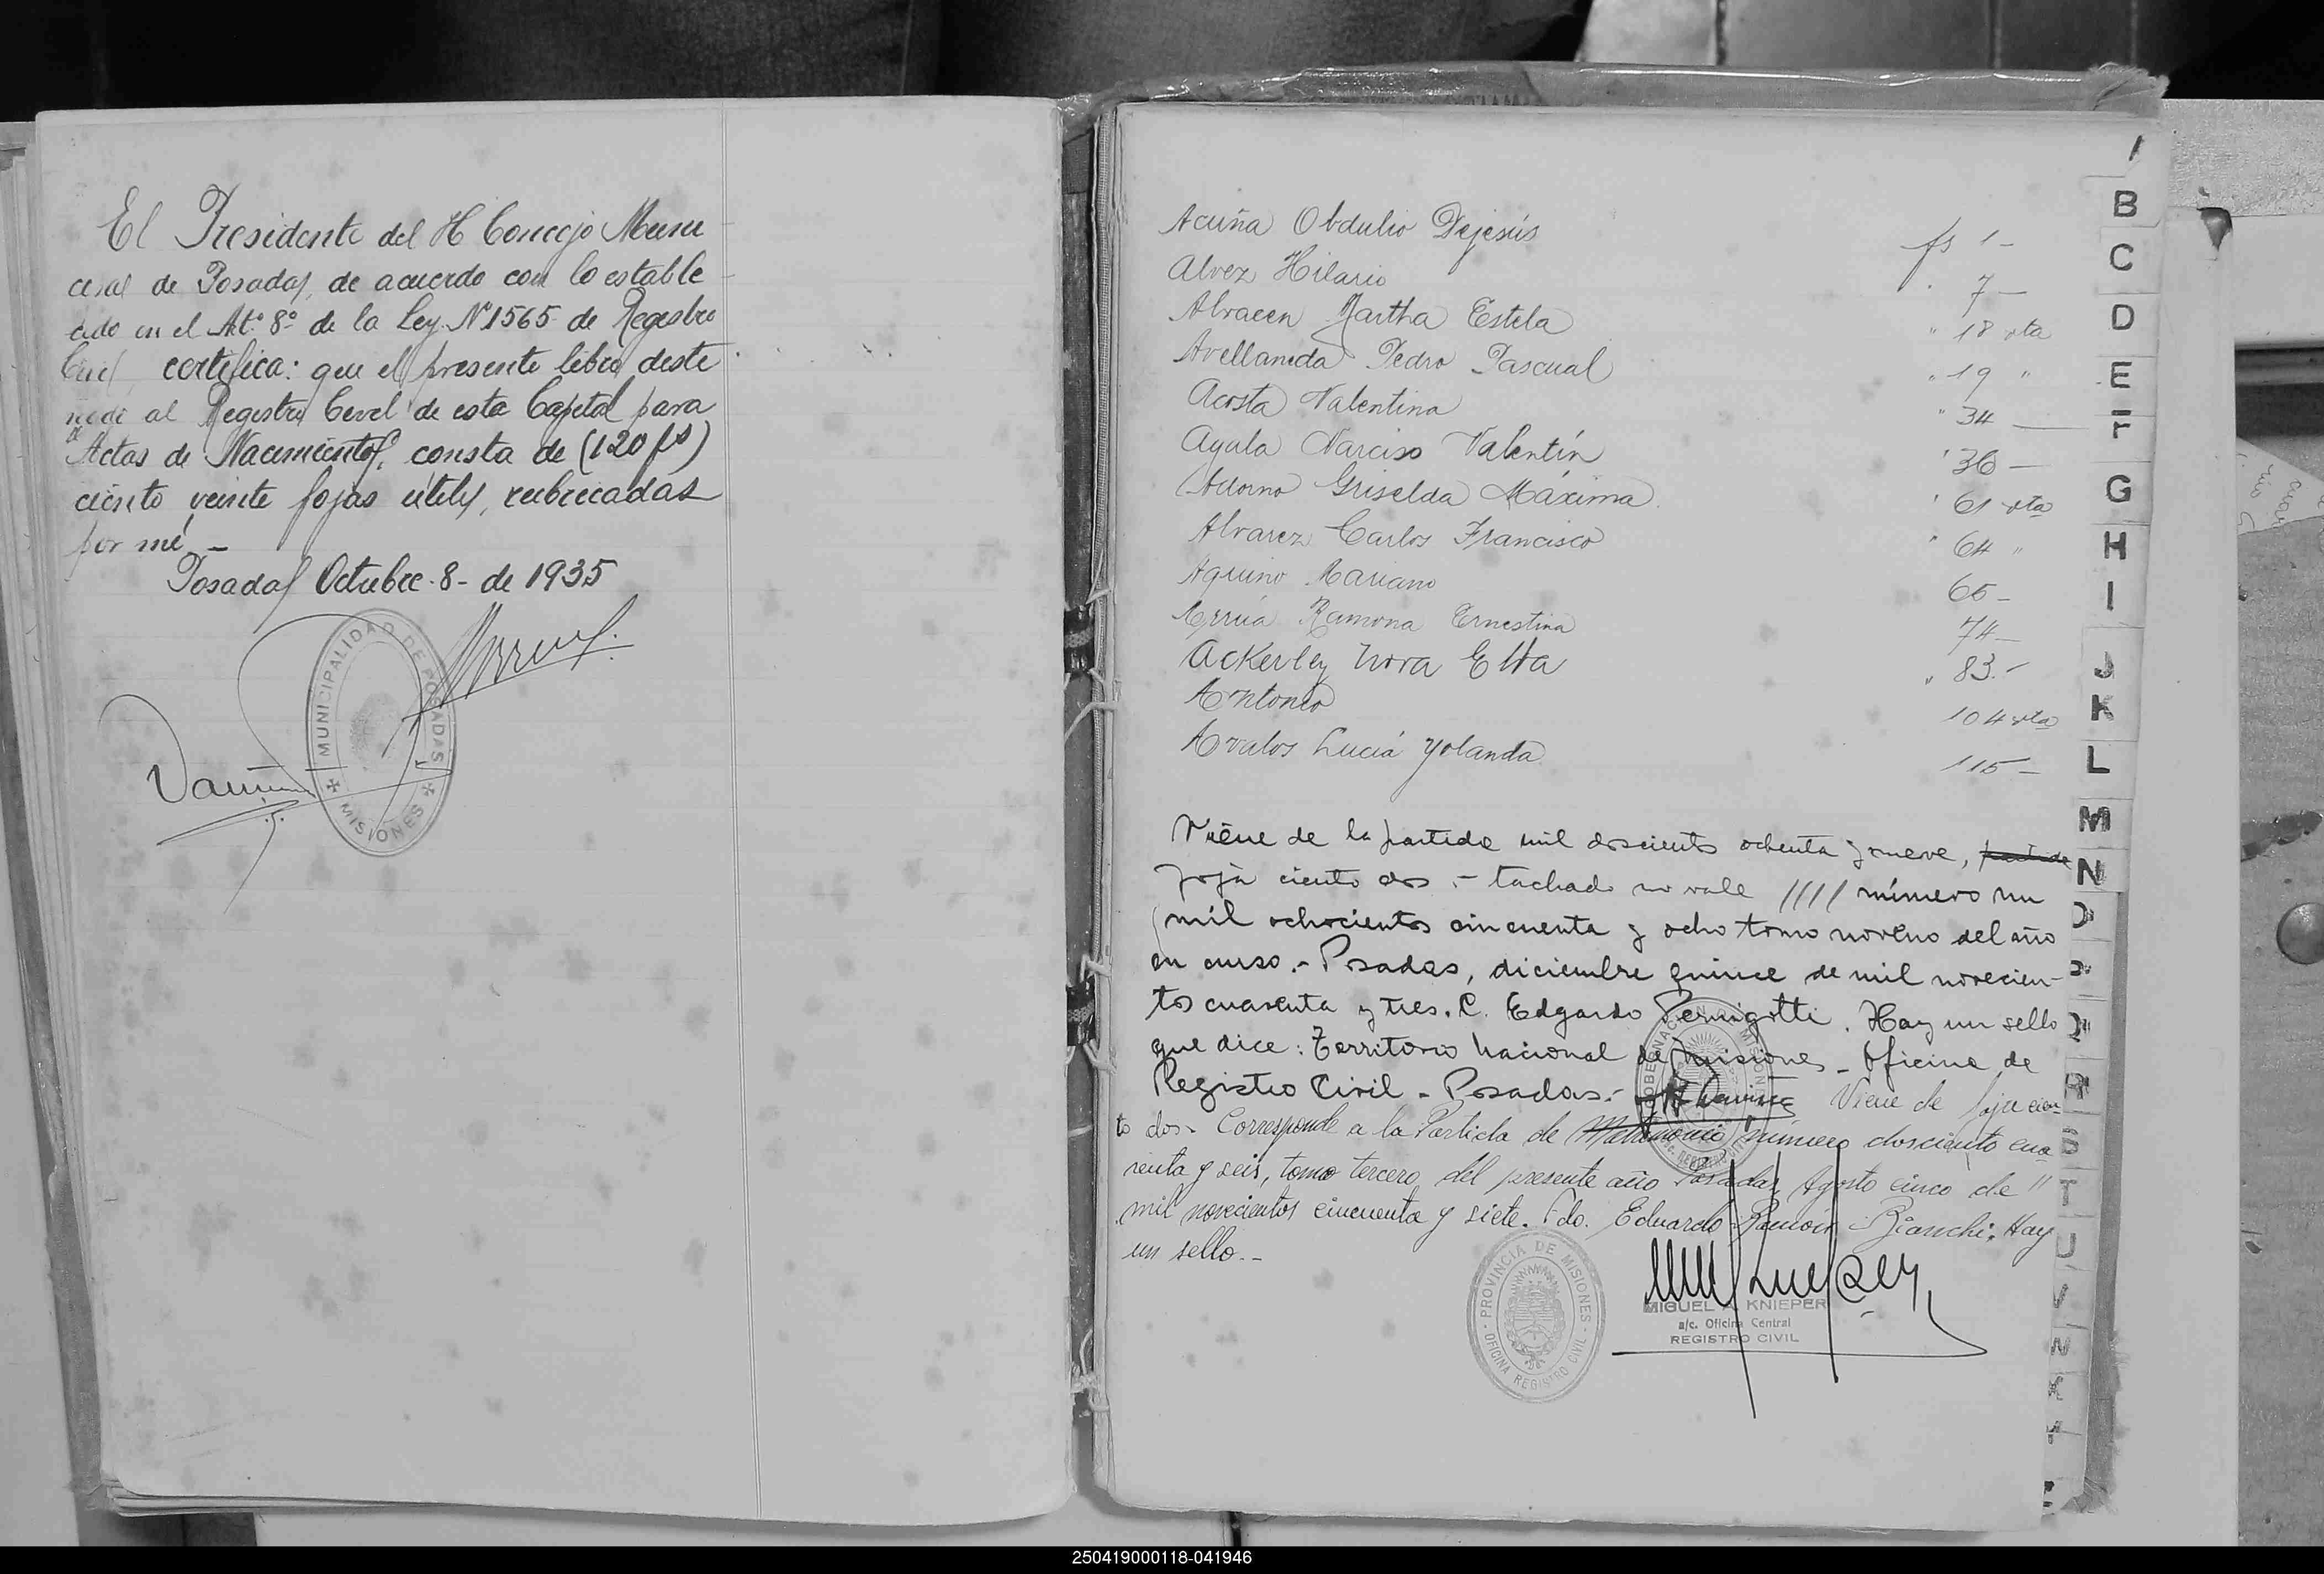 El Presidente del H Concejo Muni
cipal de Posadas, de acuerdo con lo estable
cido en el Art.º 8.º de la Ley Nº 1565 de Registro
Civil certifica: que el presente libro desti
nado al Registro Civil de esta Capital para
de Actas de Nacimientos, consta de (120 fs)
ciento veinte fojas útiles, rubricadas
por mí –
Posadas Octubre - 8 - de 1935
MUNICIPALIDAD DE POSADAS
MISIONES
Acuña Obdulio Dejesús fs 1 –
Alvez Hilario " 7 –
Alvacen Martha Estela " 18 vta
Avellaneda Pedro Pascual " 19 "
Acosta Valentina " 34 —
Ayala Narciso Valentín " 36 –
Adorno Griselda Máxima " 61 vta
Alvarez Carlos Francisco " 64 "
Aquino Mariano 65 –
Arrúa Ramona Ernestina 74 –
Ackerley Nora Elda " 83. –
Antonio 104 vta
Avalos Lucía Yolanda 115 –
Viene de la partida mil doscientos ochenta y nueve, partida
foja ciento dos .- tachado no vale //// número un
mil ochocientos cincuenta y ocho tomo noveno del año
en curso .- Posadas, diciembre quince de mil novecien-
tos cuarenta y tres. C. Edgardo Pernigotti. Hay un sello
que dice: Territorio Nacional de Misiones - Oficina de
Registro Civil - Posadas.- Viene de foja cien
to dos - Corresponde a la Partida de Matrimonio número doscientos cua
renta y seis, tomo tercero del presente año Posadas, Agosto cinco de "
mil novecientos cincuenta y siete. Fdo. Eduardo Ramón Bianchi. Hay
un sello. -
PROVINCIA DE MISIONES
OFICINA REGISTRO CIVIL
MIGUEL A. KNIEPER
a/c. Oficina Central
REGISTRO CIVIL
B
C
D
E
F
G
H
I
J
K
L
M
N
R
S
T
U
V
250419000118-041946